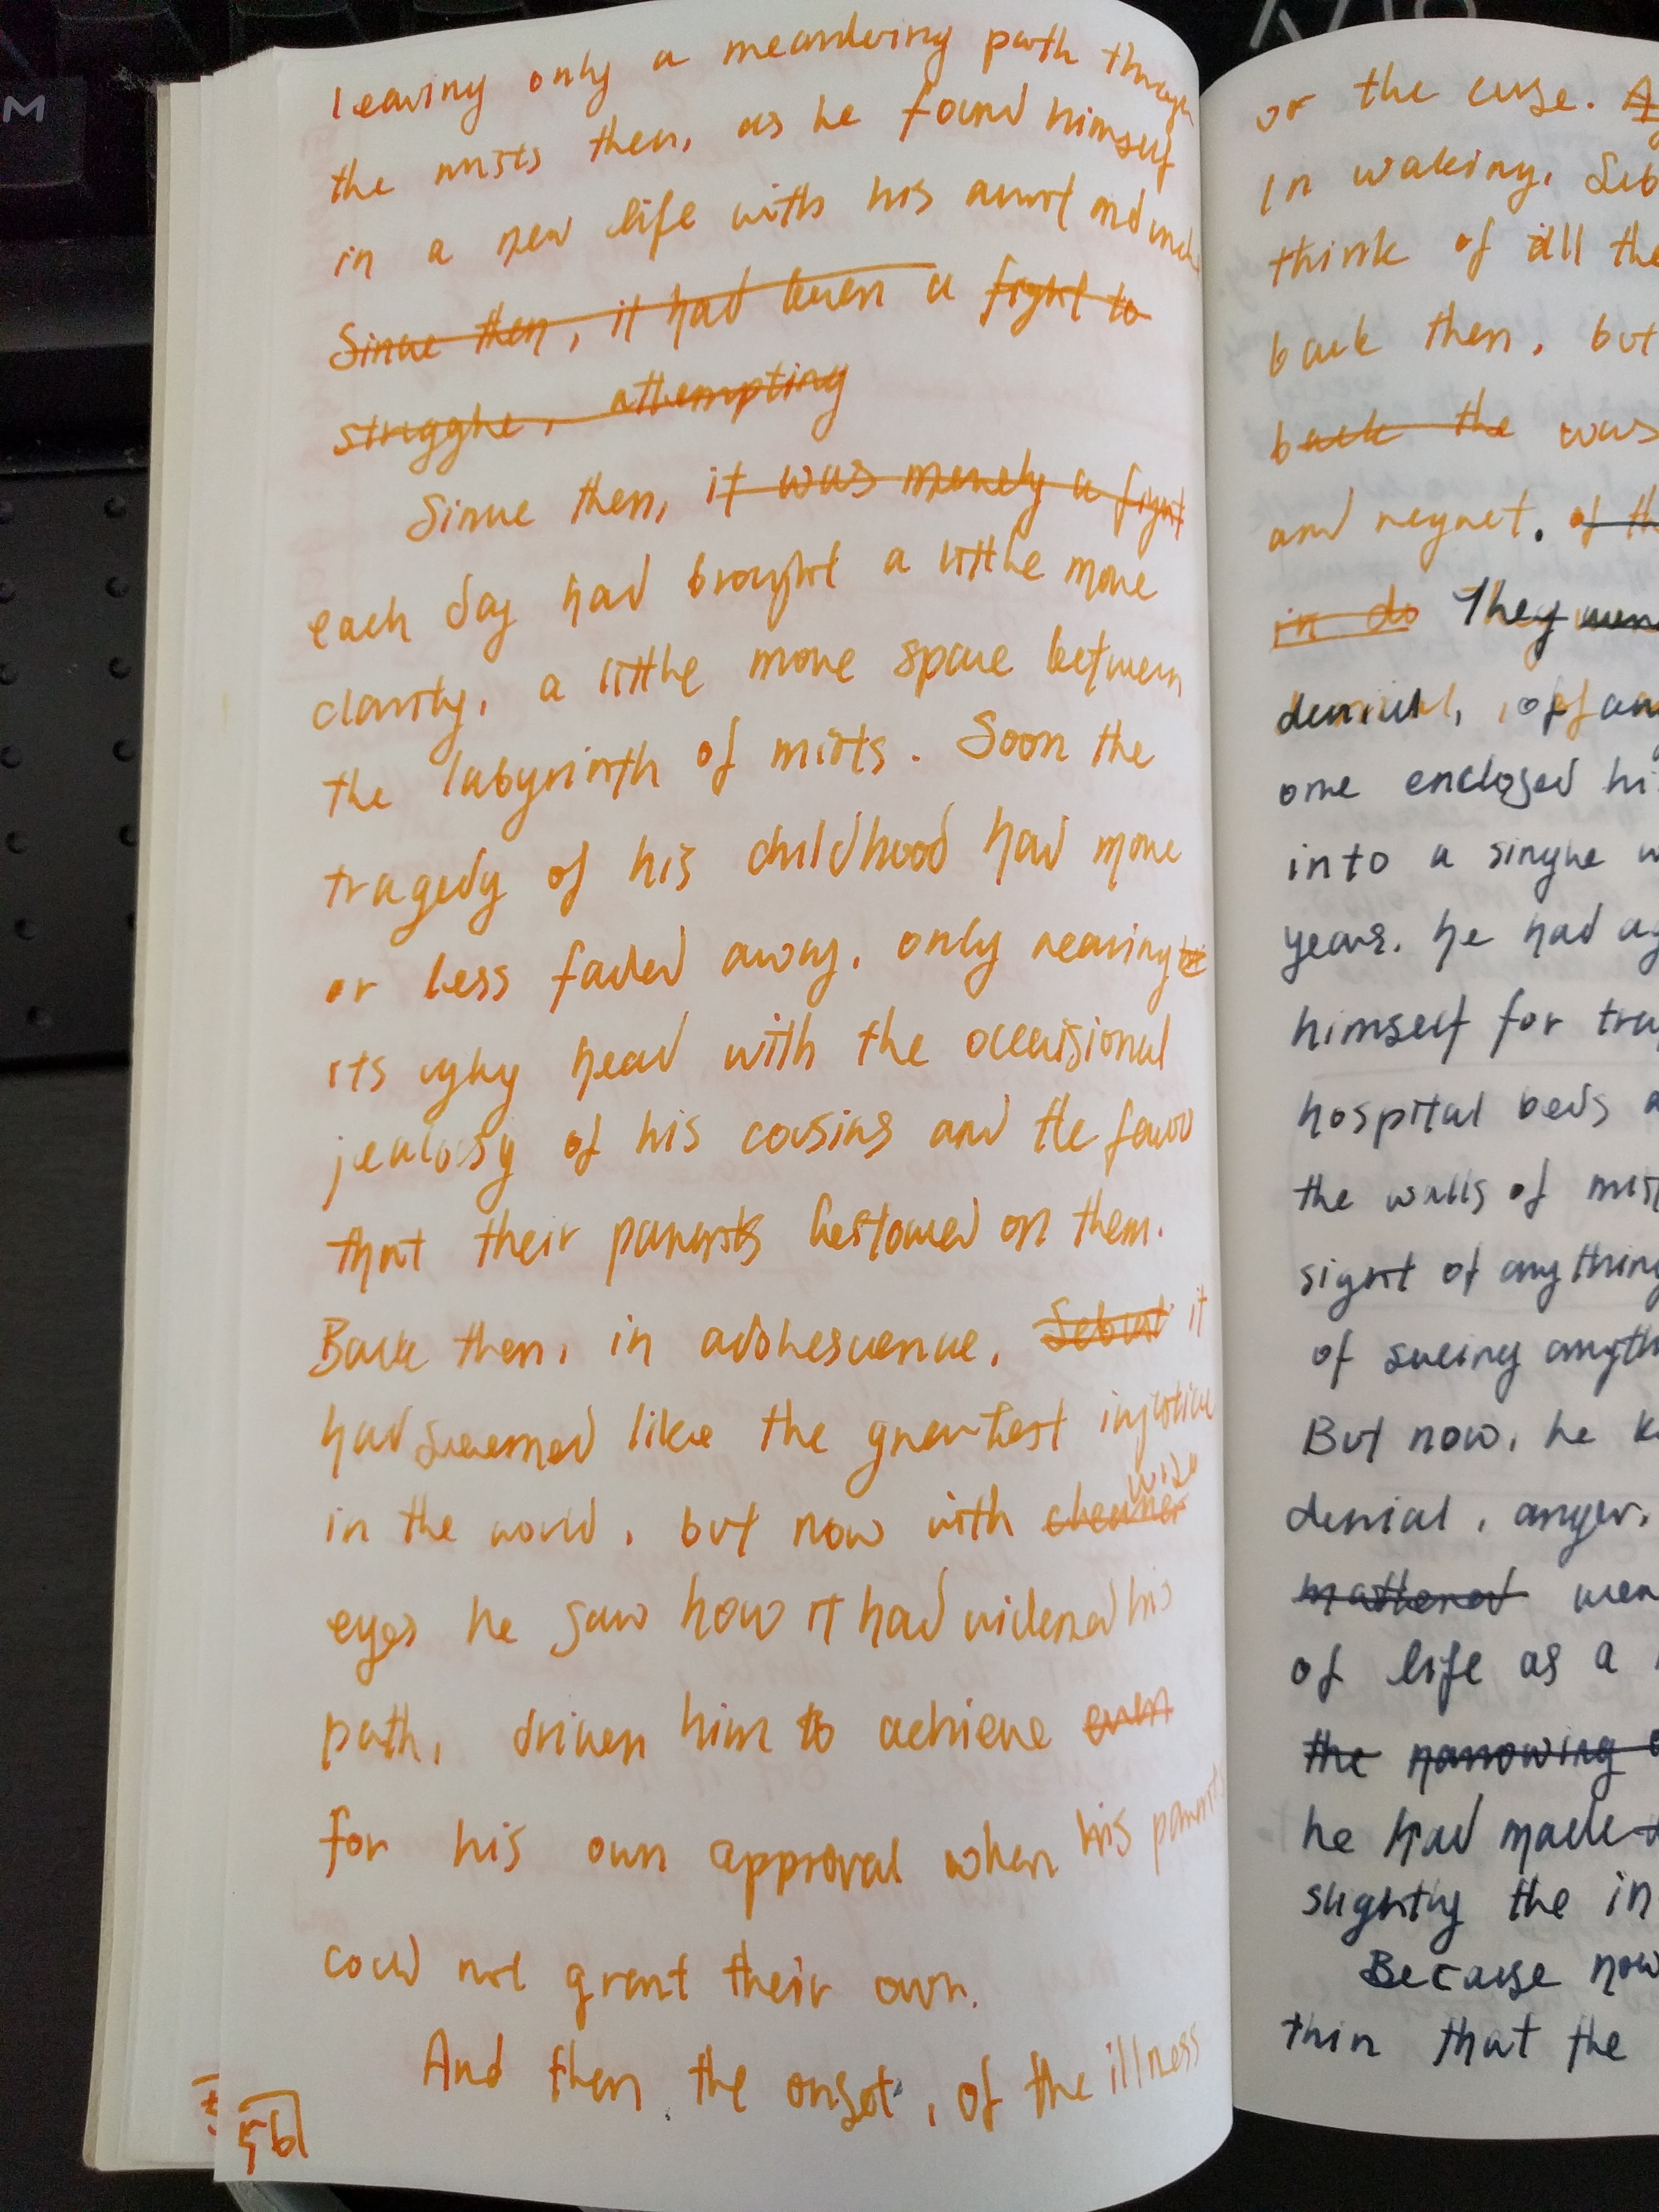 leaving only a meandering path through
the mists then, as he found himself
in a new life with his aunt and uncle
Since then, it had been a fight to
struggle, attempting
Since then, it was merely a fight
each day had brought a little more
clarity, a little more space between
the labyrinth of mists. Soon the
tragedy of his childhood had more
or less faded away, only rearing
its ugly head with the occaisional
jealousy of his cousins and the favor
that their parents bestowed on them.
Back then, in adolescence, Sebast it
had seemed like the greatest injustice
in the world, but now with clearer wise
eyes he saw how it had widened his
path, driven him to achieve even
for his own approval when his parents
could not grant their own.
And then the onset, of the illness
56
M
or the curse.
In waking, Seb
think of all the
back then, but
back the was
and regret. of th
in do They were
denial, of an
one enclosed hi
into a single w
years. he had ag
himself for tra
hospital beds a
the walls of mist
sight of anything
of seeing anyth
But now, he k
denial, anger,
mattered were
of life as a
the narrowing o
he had made
slightly the in
Because now
thin that the